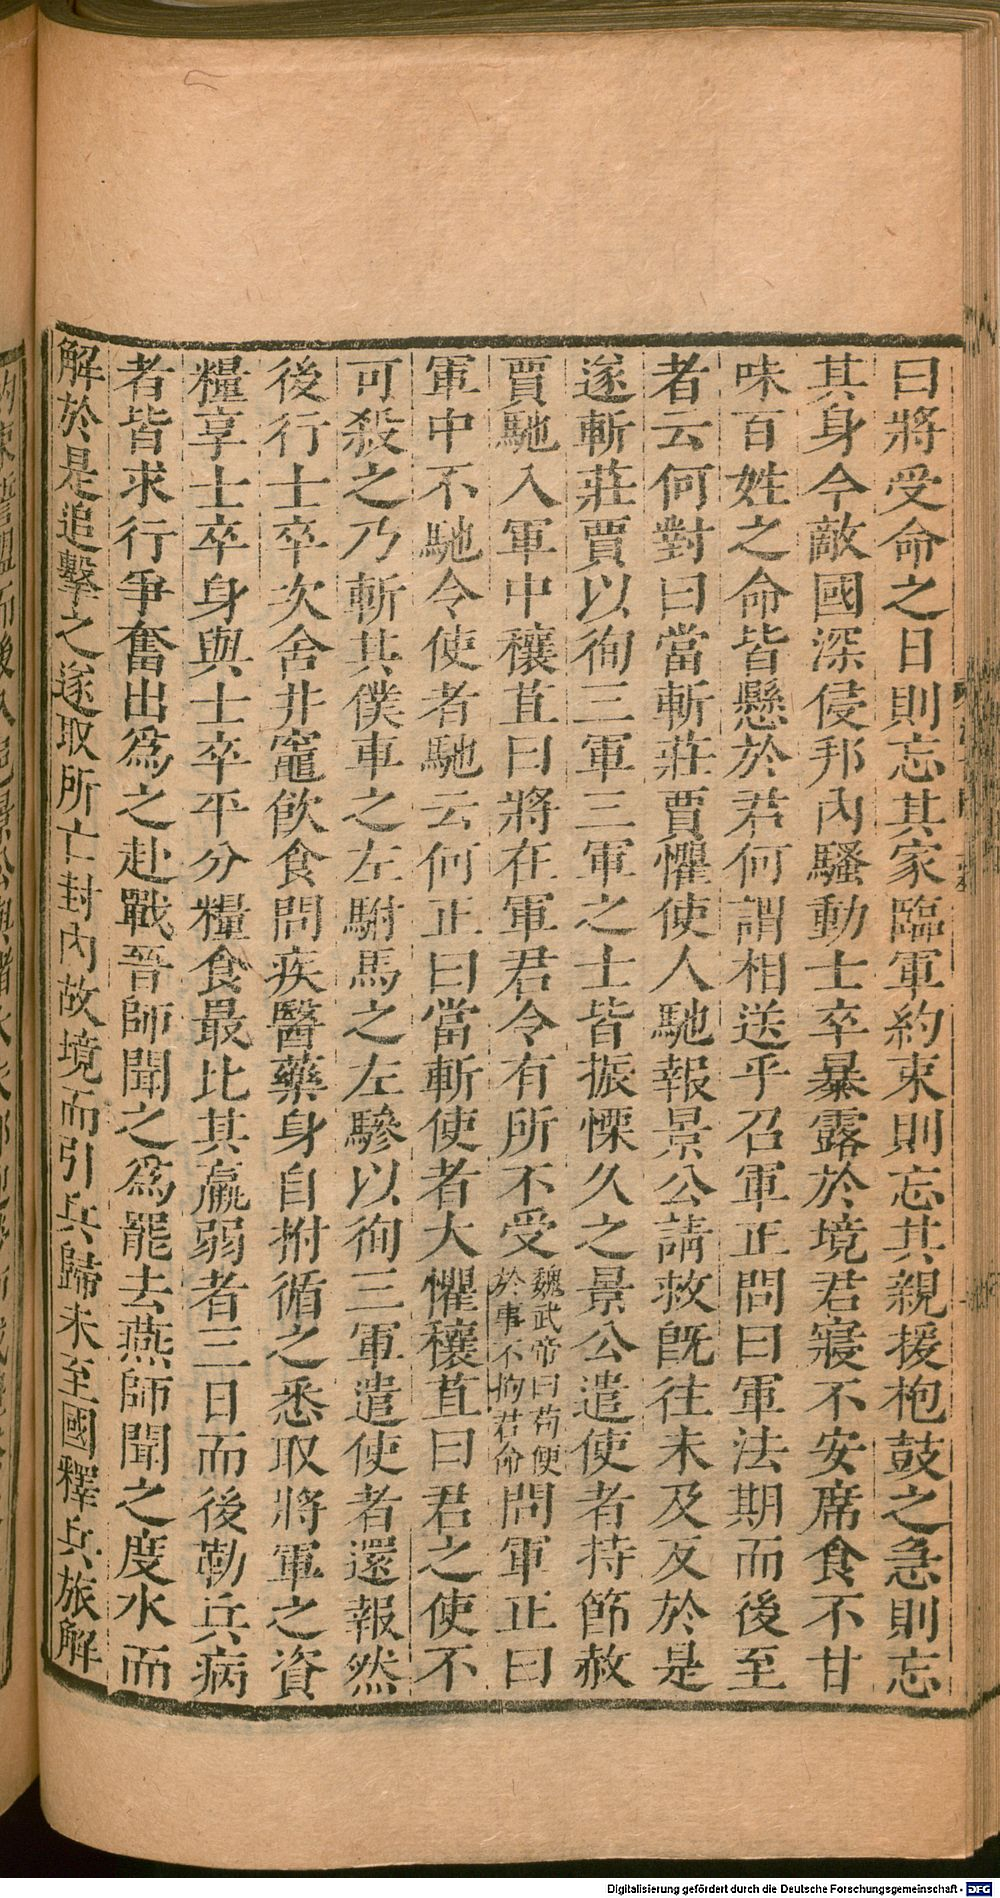 曰將受命之日則忘其家臨軍約束則忘其親援枹鼓之急則忘
其身今敵國深侵邦內騷動士卒暴露於境君寢不安席食不甘
味百姓之命皆懸於君何謂相送乎召軍正問曰軍法期而後至
者云何對曰當斬莊賈懼使人馳報景公請救旣往未及反於是
遂斬莊賈以徇三軍三軍之士皆振慄久之景公遣使者持節赦
賈馳入軍中穰苴曰將在軍君令有所不受
魏武帝曰苟便
於事不拘君命
問軍正曰
軍中不馳今使者馳云何正曰當斬使者大懼穰苴曰君之使不
可殺之乃斬其僕車之左駙馬之左驂以徇三軍遣使者還報然
後行士卒次舍井竈飲食問疾醫藥身自拊循之悉取將軍之資
糧享士卒身與士卒平分糧食最比其羸弱者三日而後勒兵病
者皆求行爭奮出爲之赴戰晉師聞之爲罷去燕師聞之度水而
解於是追擊之遂取所亡封內故境而引兵歸未至國釋兵旅解
Digitalisierung gefördert durch die Deutsche Forschungsgemeinschaft - DFG